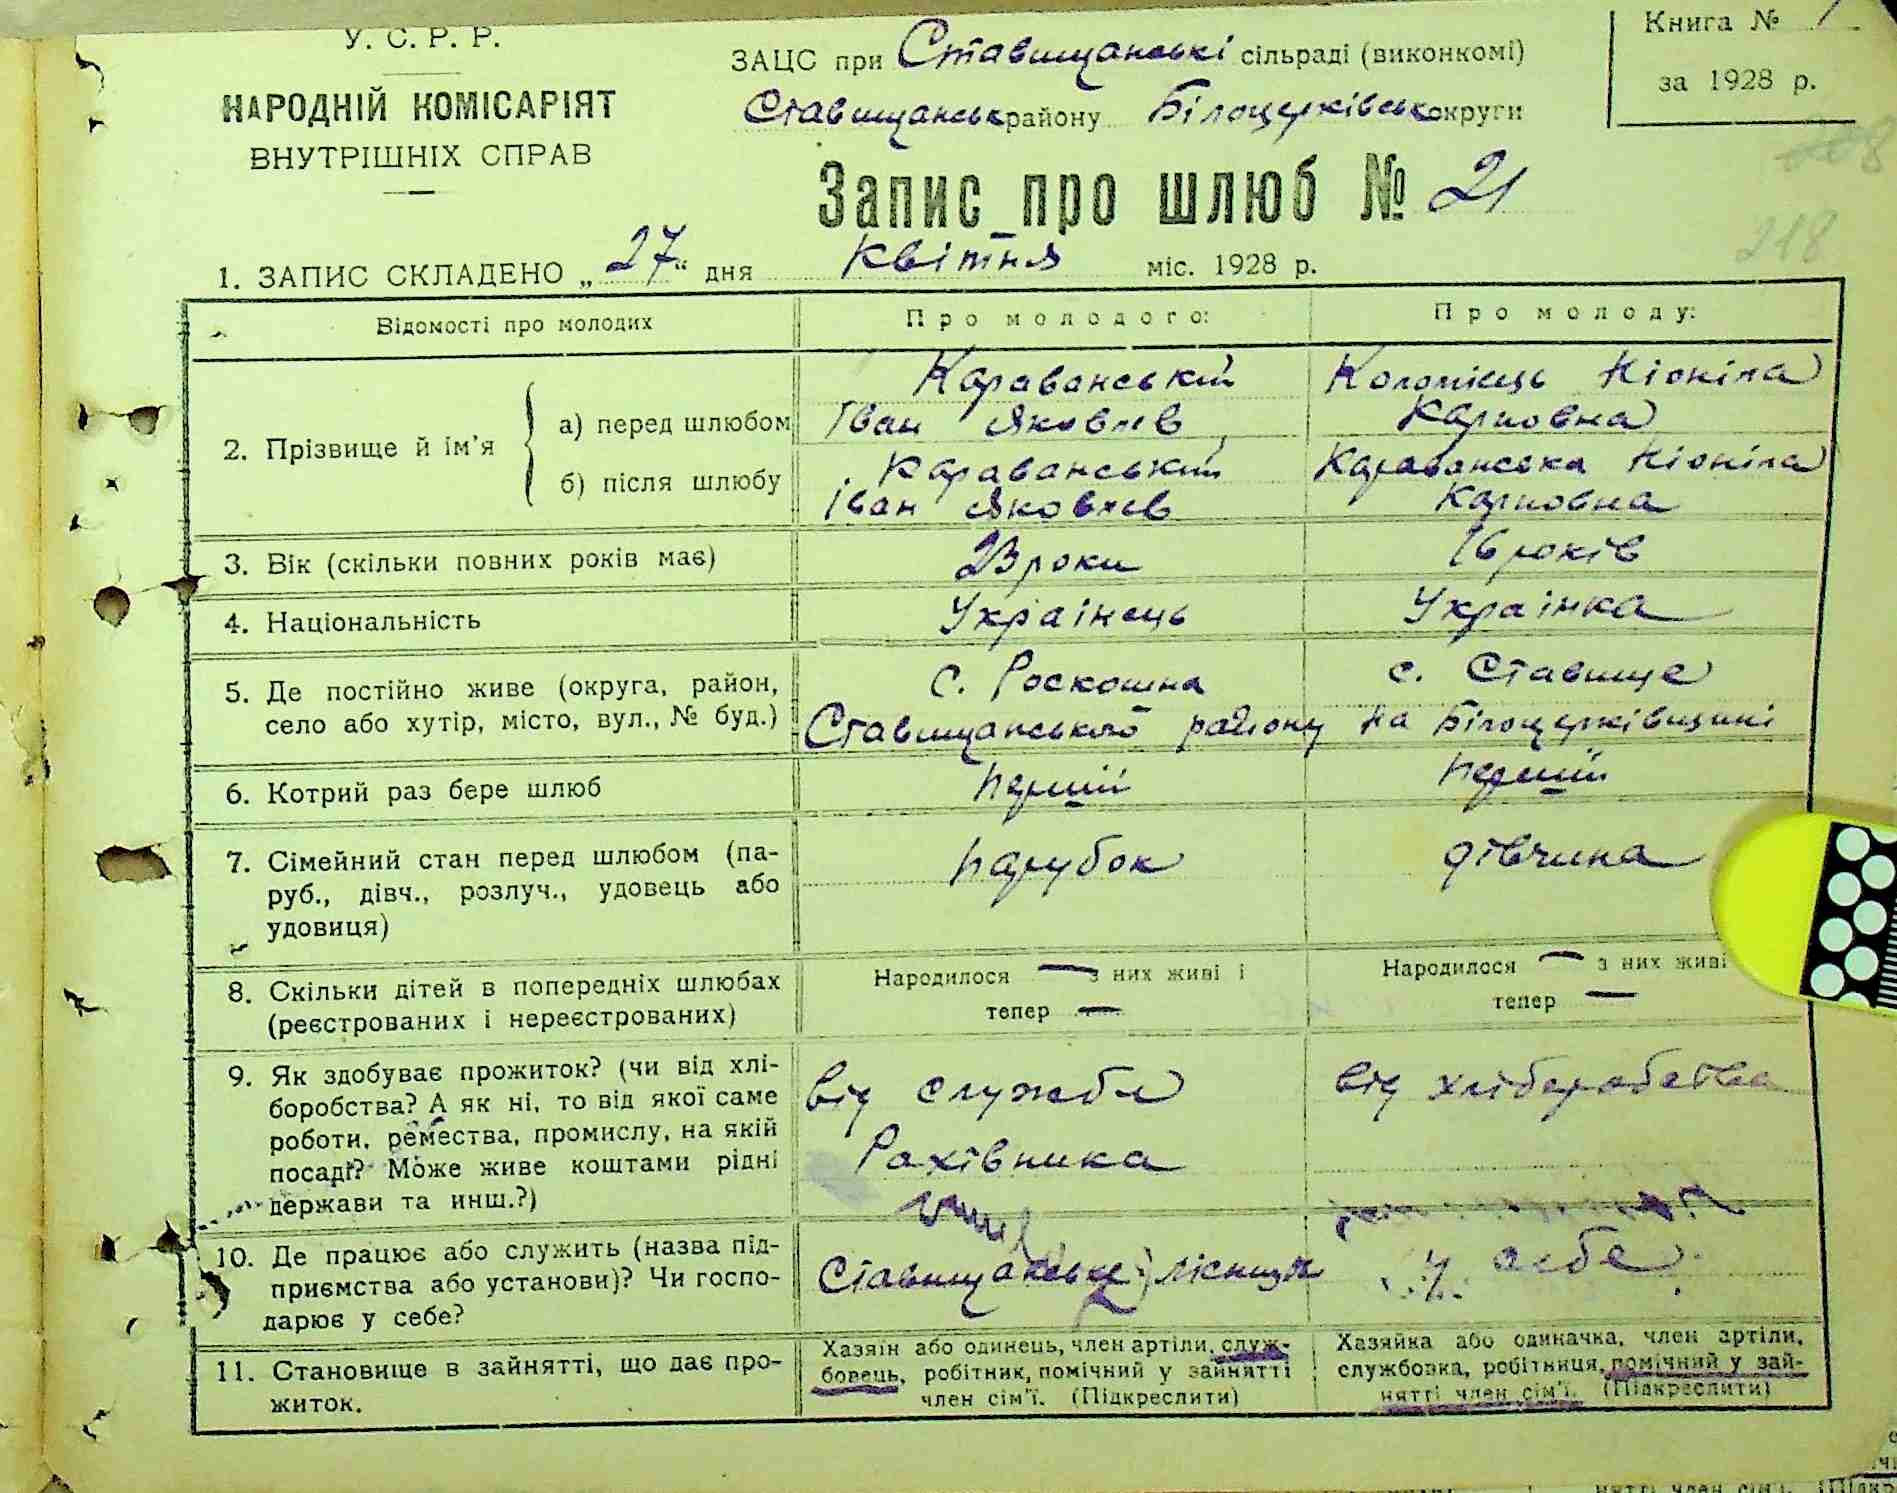 У. С. Р. Р.
НАРОДНІЙ КОМІСАРІЯТ
ВНУТРІШНІХ СПРАВ
ЗАЦС при Ставищанські сільраді (виконкомі)
Ставищанськ району Білоцерківськ округи
Книга № 1
за 1928 р.
Запис про шлюб № 21
218
1. ЗАПИС СКЛАДЕНО „ 27 “ дня квітня міс. 1928 р.
Відомості про молодих
Про молодого:
Про молоду:
2. Прізвище й ім’я
а) перед шлюбом
Караванський
Іван Яковлев
Коломієць Ніоніла
Карповна
б) після шлюбу
Караванський
Іван Яковлев
Караванська Ніоніла
Карповна
3. Вік (скільки повних років має)
23 роки
16 років
4. Національність
Українець
Українка
5. Де постійно живе (округа, район,
село або хутір, місто, вул., № буд.)
с. Роскошна
с. Ставище
Ставищанського району на Білоцерківщині
6. Котрий раз бере шлюб
перший
перший
7. Сімейний стан перед шлюбом (па-
руб., дівч., розлуч., удовець або
удовиця)
парубок
дівчина
8. Скільки дітей в попередніх шлюбах
(реєстрованих і нереєстрованих)
Народилося — з них живі і
тепер —
Народилося — з них живі
тепер —
9. Як здобуває прожиток? (чи від хлі-
боробства? А як ні, то від якої саме
роботи, ремества, промислу, на якій
посаді? Може живе коштами рідні
держави та инш.?)
від служби
Рахівника
від хліборобства
10. Де працює або служить (назва під-
приємства або установи)? Чи госпо-
дарює у себе?
Ставищанське лісництв
у себе
11. Становище в зайнятті, що дає про-
житок.
Хазяін або одинець, член артіли, служ-
бовець, робітник, помічний у зайнятті
член сім’ї. (Підкреслити)
Хазяйка або одиначка, член артіли,
службовка, робітниця, помічний у зай-
нятті член сім’ї. (Підкреслити)